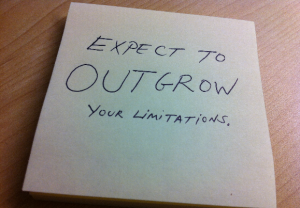 EXPECT TO
OUTGROW
YOUR LIMITATIONS.